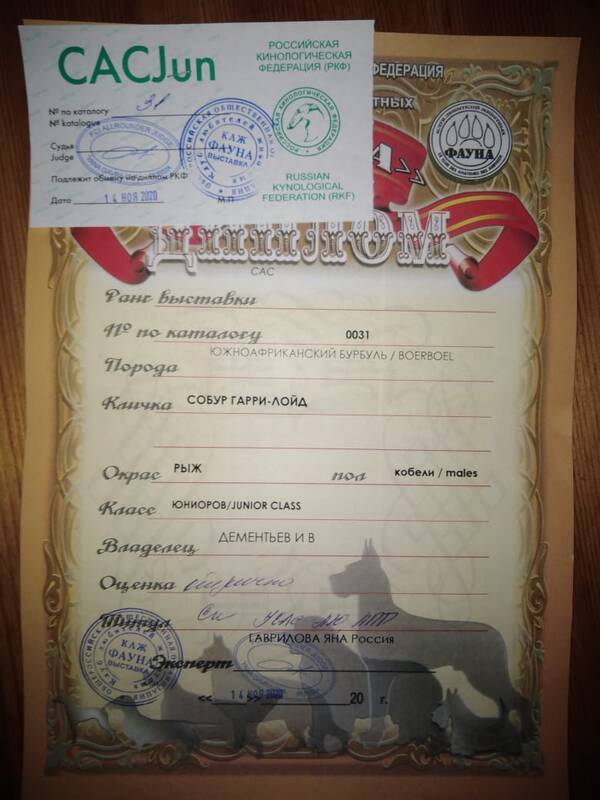 CACJun
РОССИЙСКАЯ
КИНОЛОГИЧЕСКАЯ
ФЕДЕРАЦИЯ (РКФ)
№ по каталогу 31
№ katalogue
Судья
Judge
FCI ALLROUNDER JUDGE
КЛЖ
ФАУНА
ВЫСТАВКА
РОССИЙСКАЯ КИНОЛОГИЧЕСКАЯ ФЕДЕРАЦИЯ
Подлежит обмену на диплом РКФ
Дата 14 НОЯ 2020
М.П
RUSSIAN
KYNOLOGICAL
FEDERATION (RKF)
ФЕДЕРАЦИЯ
ФАУНА
ДИПЛОМ
CAC
Ранг выставки
№ по каталогу 0031
Порода ЮЖНОАФРИКАНСКИЙ БУРБУЛЬ / BOERBOEL
Кличка СОБУР ГАРРИ-ЛОЙД
Окрас РЫЖ пол кобели / males
Класс ЮНИОРОВ/JUNIOR CLASS
Владелец ДЕМЕНТЬЕВ И В
Оценка отлично
Титул
ГАВРИЛОВА ЯНА Россия
КЛЖ
ФАУНА
ВЫСТАВКА
Эксперт
« 14 НОЯ 2020 » 20 г.